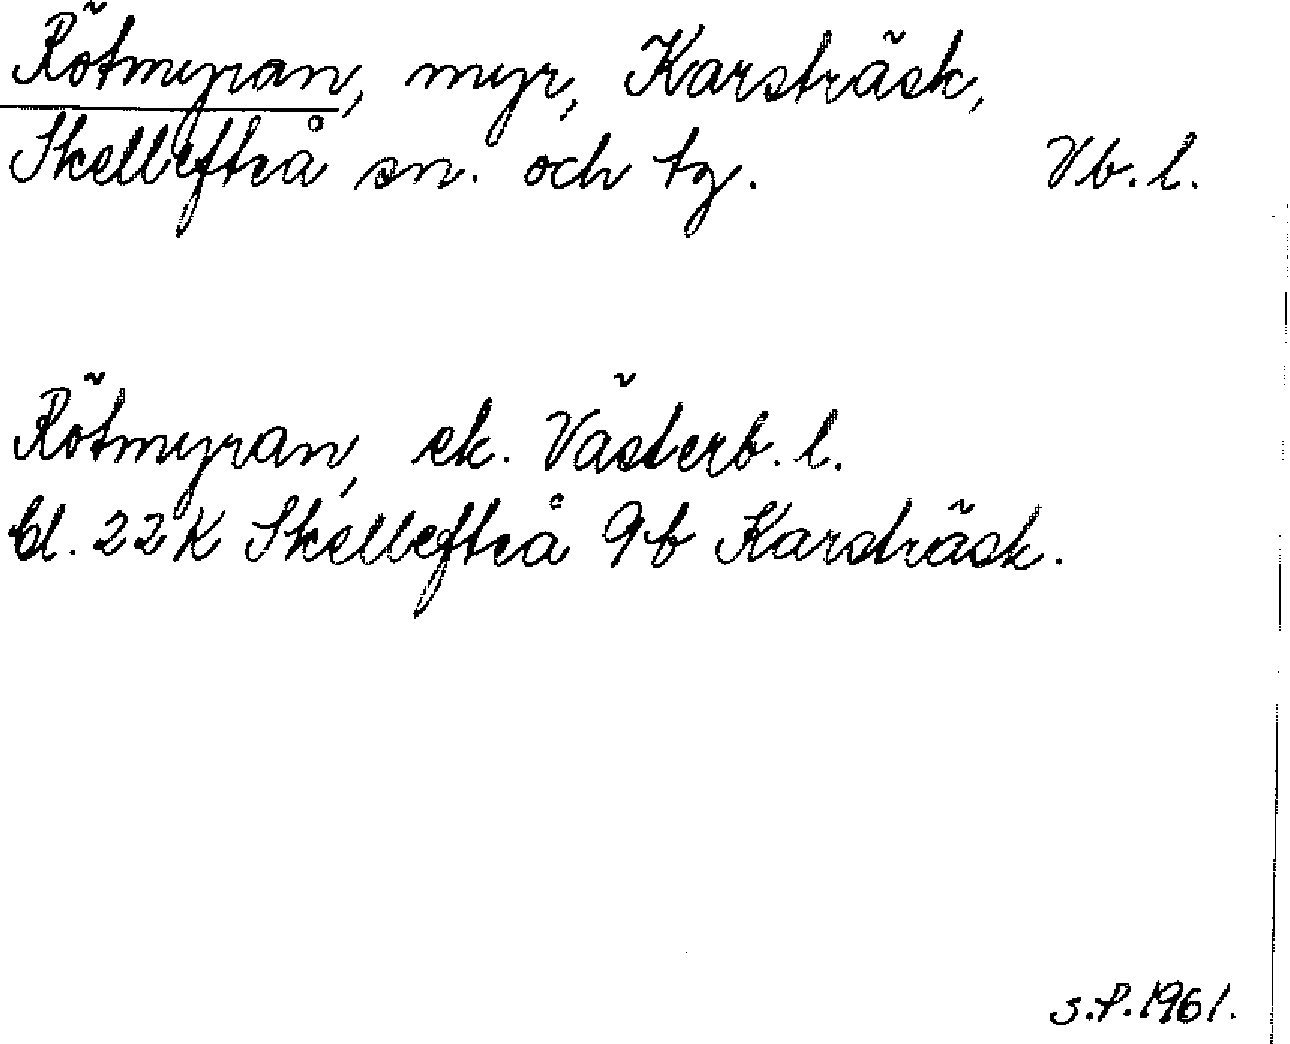 Rötmyran, myr, Karsträsk,
Skellefteå sn. och tg. Vb. l.
Rötmyran, ek. Västerb. l.
bl. 22 K Skellefteå 9b Karsträsk.
S.P. 1961.